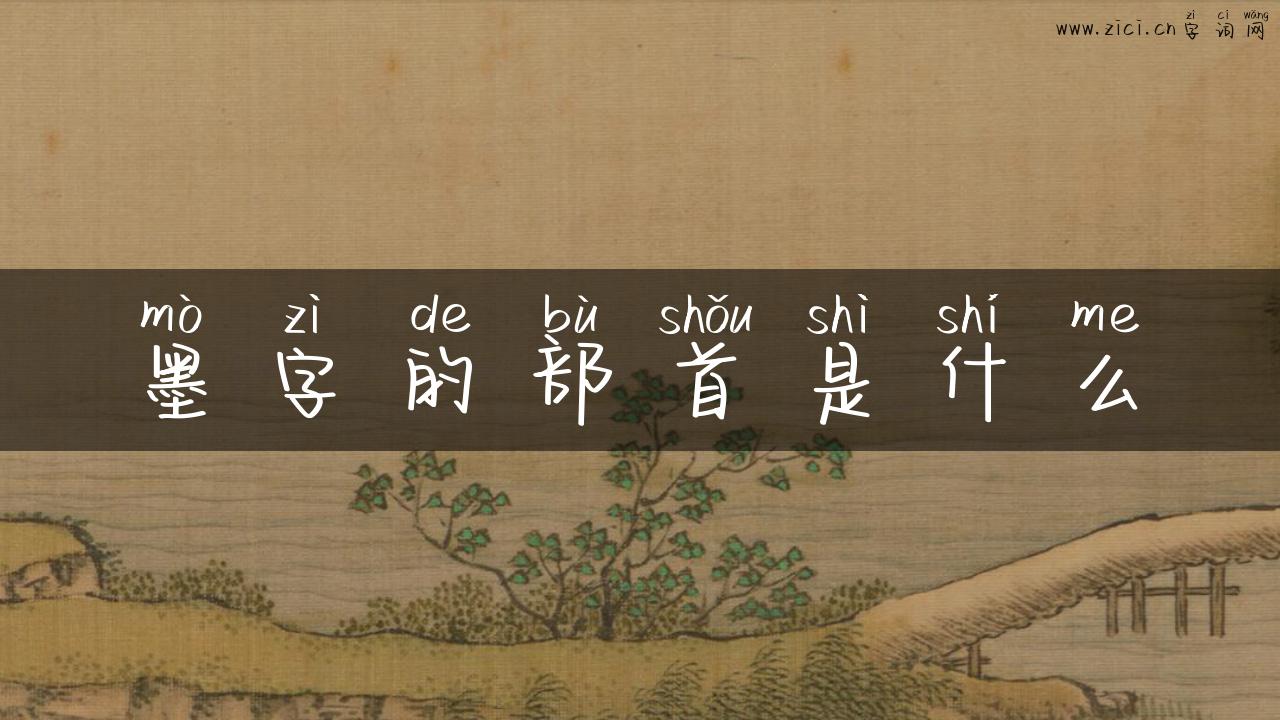 zì cí wǎng
www.zici.cn字词网
mò zì de bù shǒu shì shí me
墨字的部首是什么